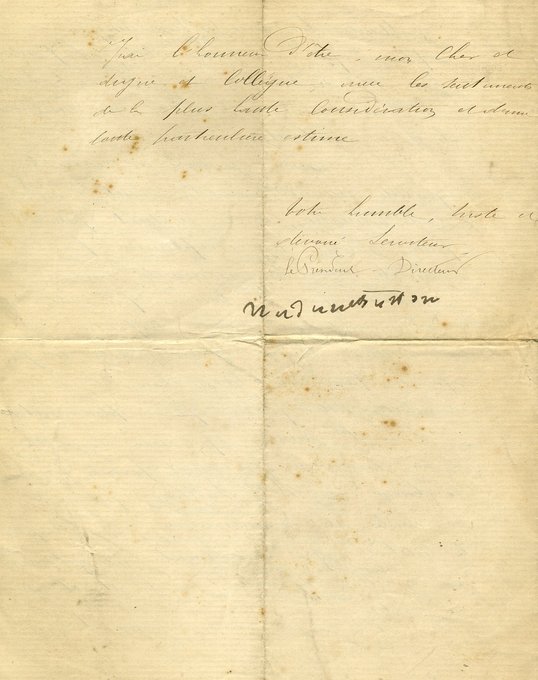 J'ai l'honneur d'être, mon cher et
digne et Collègue, avec les sentiments
de la plus haute Considération et d'une
toute particulière estime
Votre humble, triste et
dévoué Serviteur
Le Président Directeur